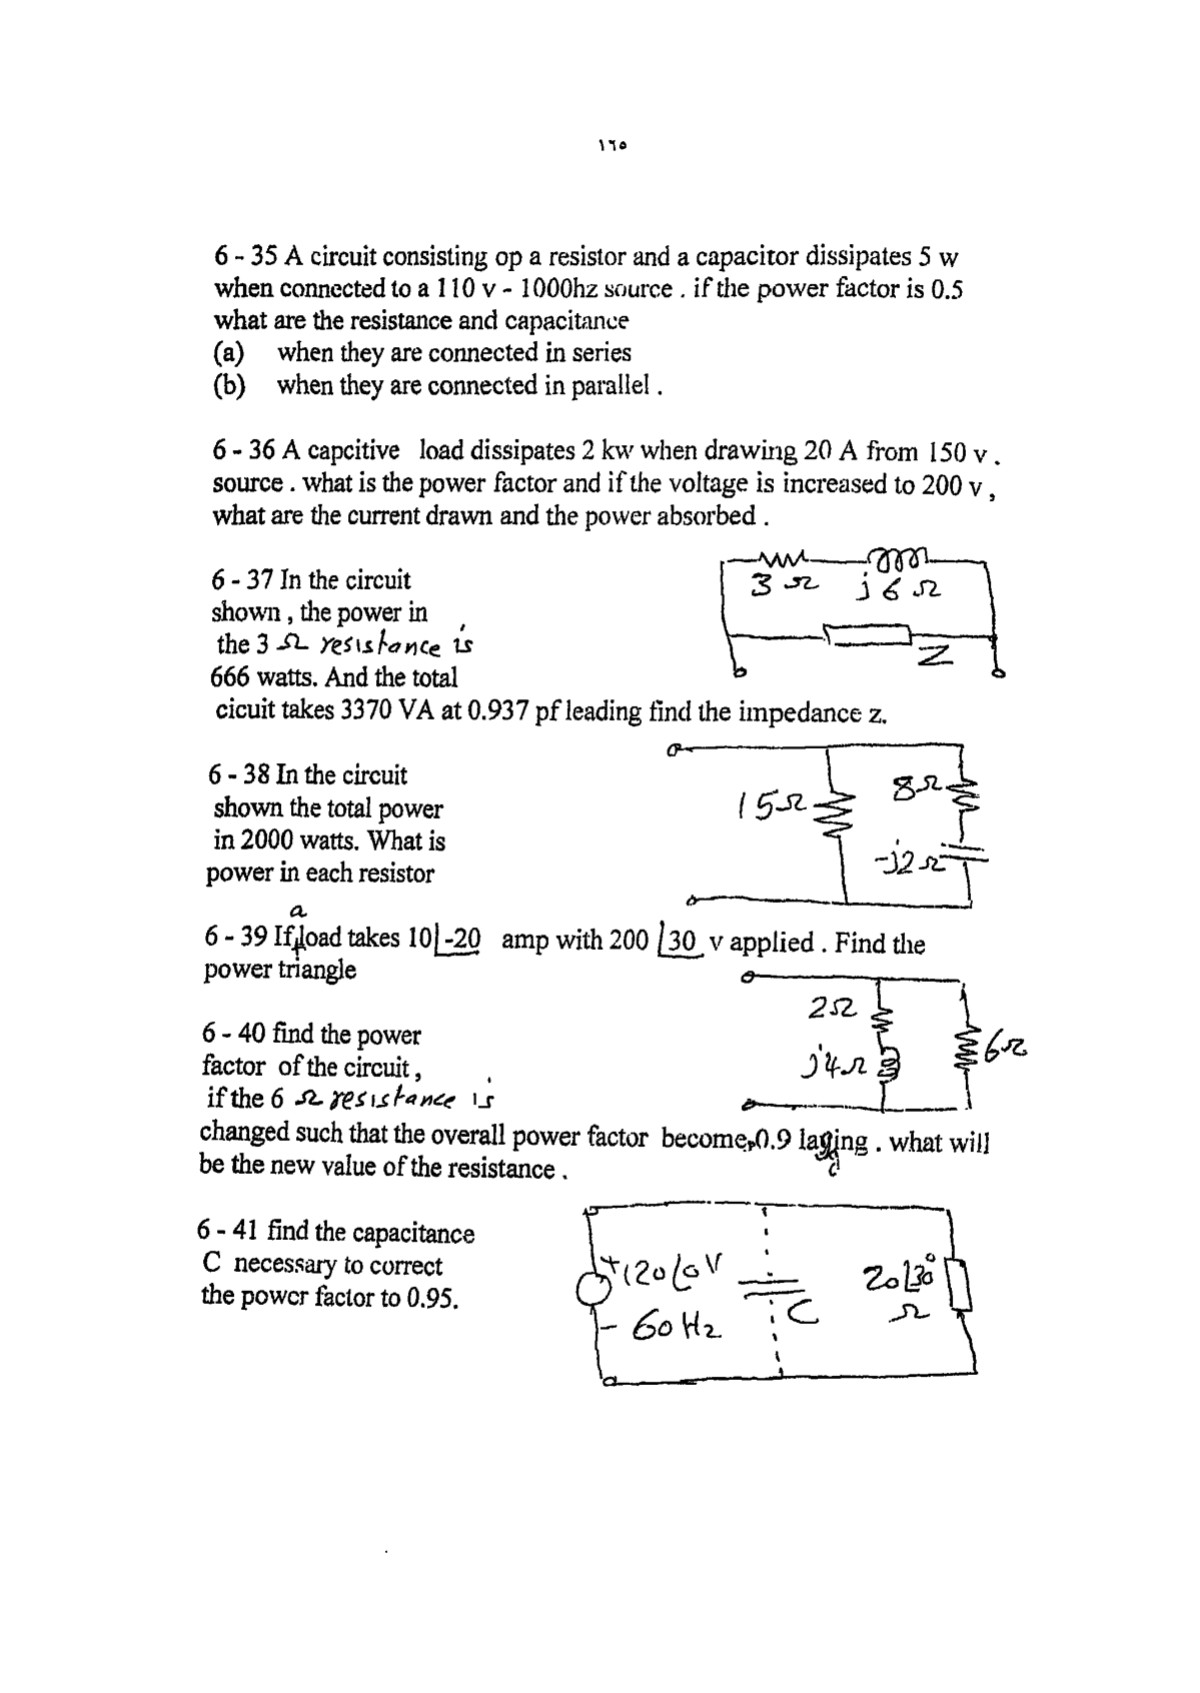 ١٦٥
6 - 35 A circuit consisting op a resistor and a capacitor dissipates 5 w
when connected to a 110 v - 1000hz source . if the power factor is 0.5
what are the resistance and capacitance
(a) when they are connected in series
(b) when they are connected in parallel .
6 - 36 A capcitive load dissipates 2 kw when drawing 20 A from 150 v .
source . what is the power factor and if the voltage is increased to 200 v ,
what are the current drawn and the power absorbed .
6 - 37 In the circuit
shown , the power in
the 3 Ω resistance is
666 watts. And the total
cicuit takes 3370 VA at 0.937 pf leading find the impedance z.
3 Ω j6 Ω
Z
6 - 38 In the circuit
shown the total power
in 2000 watts. What is
power in each resistor
15Ω 8Ω
-j2 Ω
a
6 - 39 If load takes 10∠-20 amp with 200 ∠30 v applied . Find the
power triangle
6 - 40 find the power
factor of the circuit ,
if the 6 Ω resistance is
changed such that the overall power factor become, 0.9 laging . what will
be the new value of the resistance .
2Ω
j4Ω 6Ω
6 - 41 find the capacitance
C necessary to correct
the power factor to 0.95.
+120∠0 V
- 60 Hz
C
20∠30°
Ω